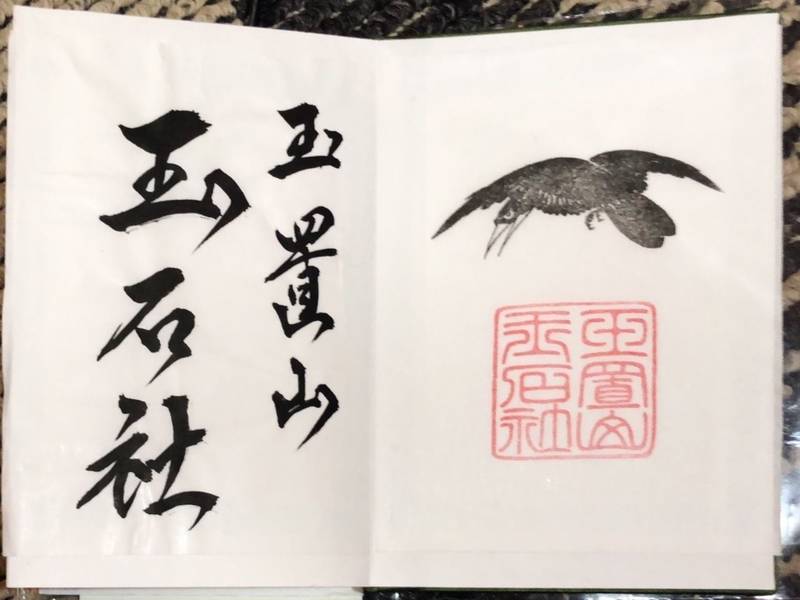 玉置山
玉石社
玉置山
玉石社